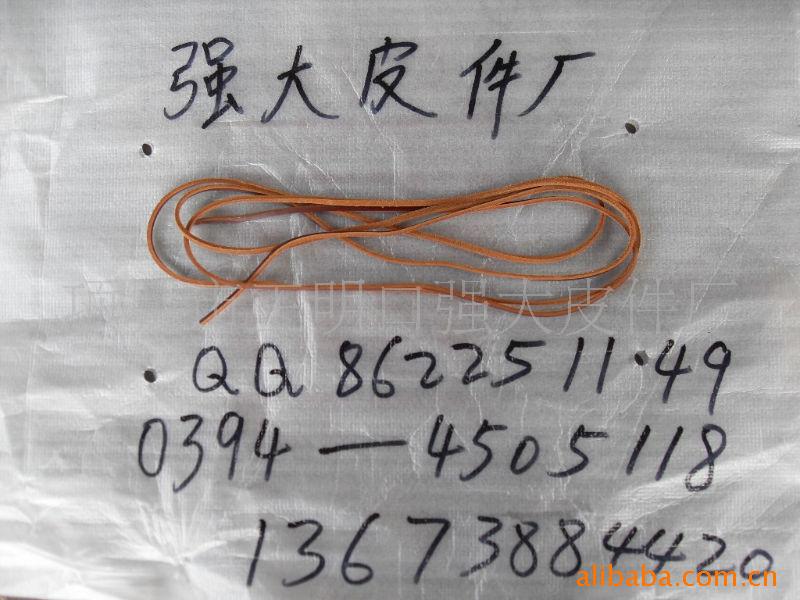 强大皮件厂
明口强大皮件厂
QQ 862251149
0394—4505118
13673884420
alibaba.com.cn